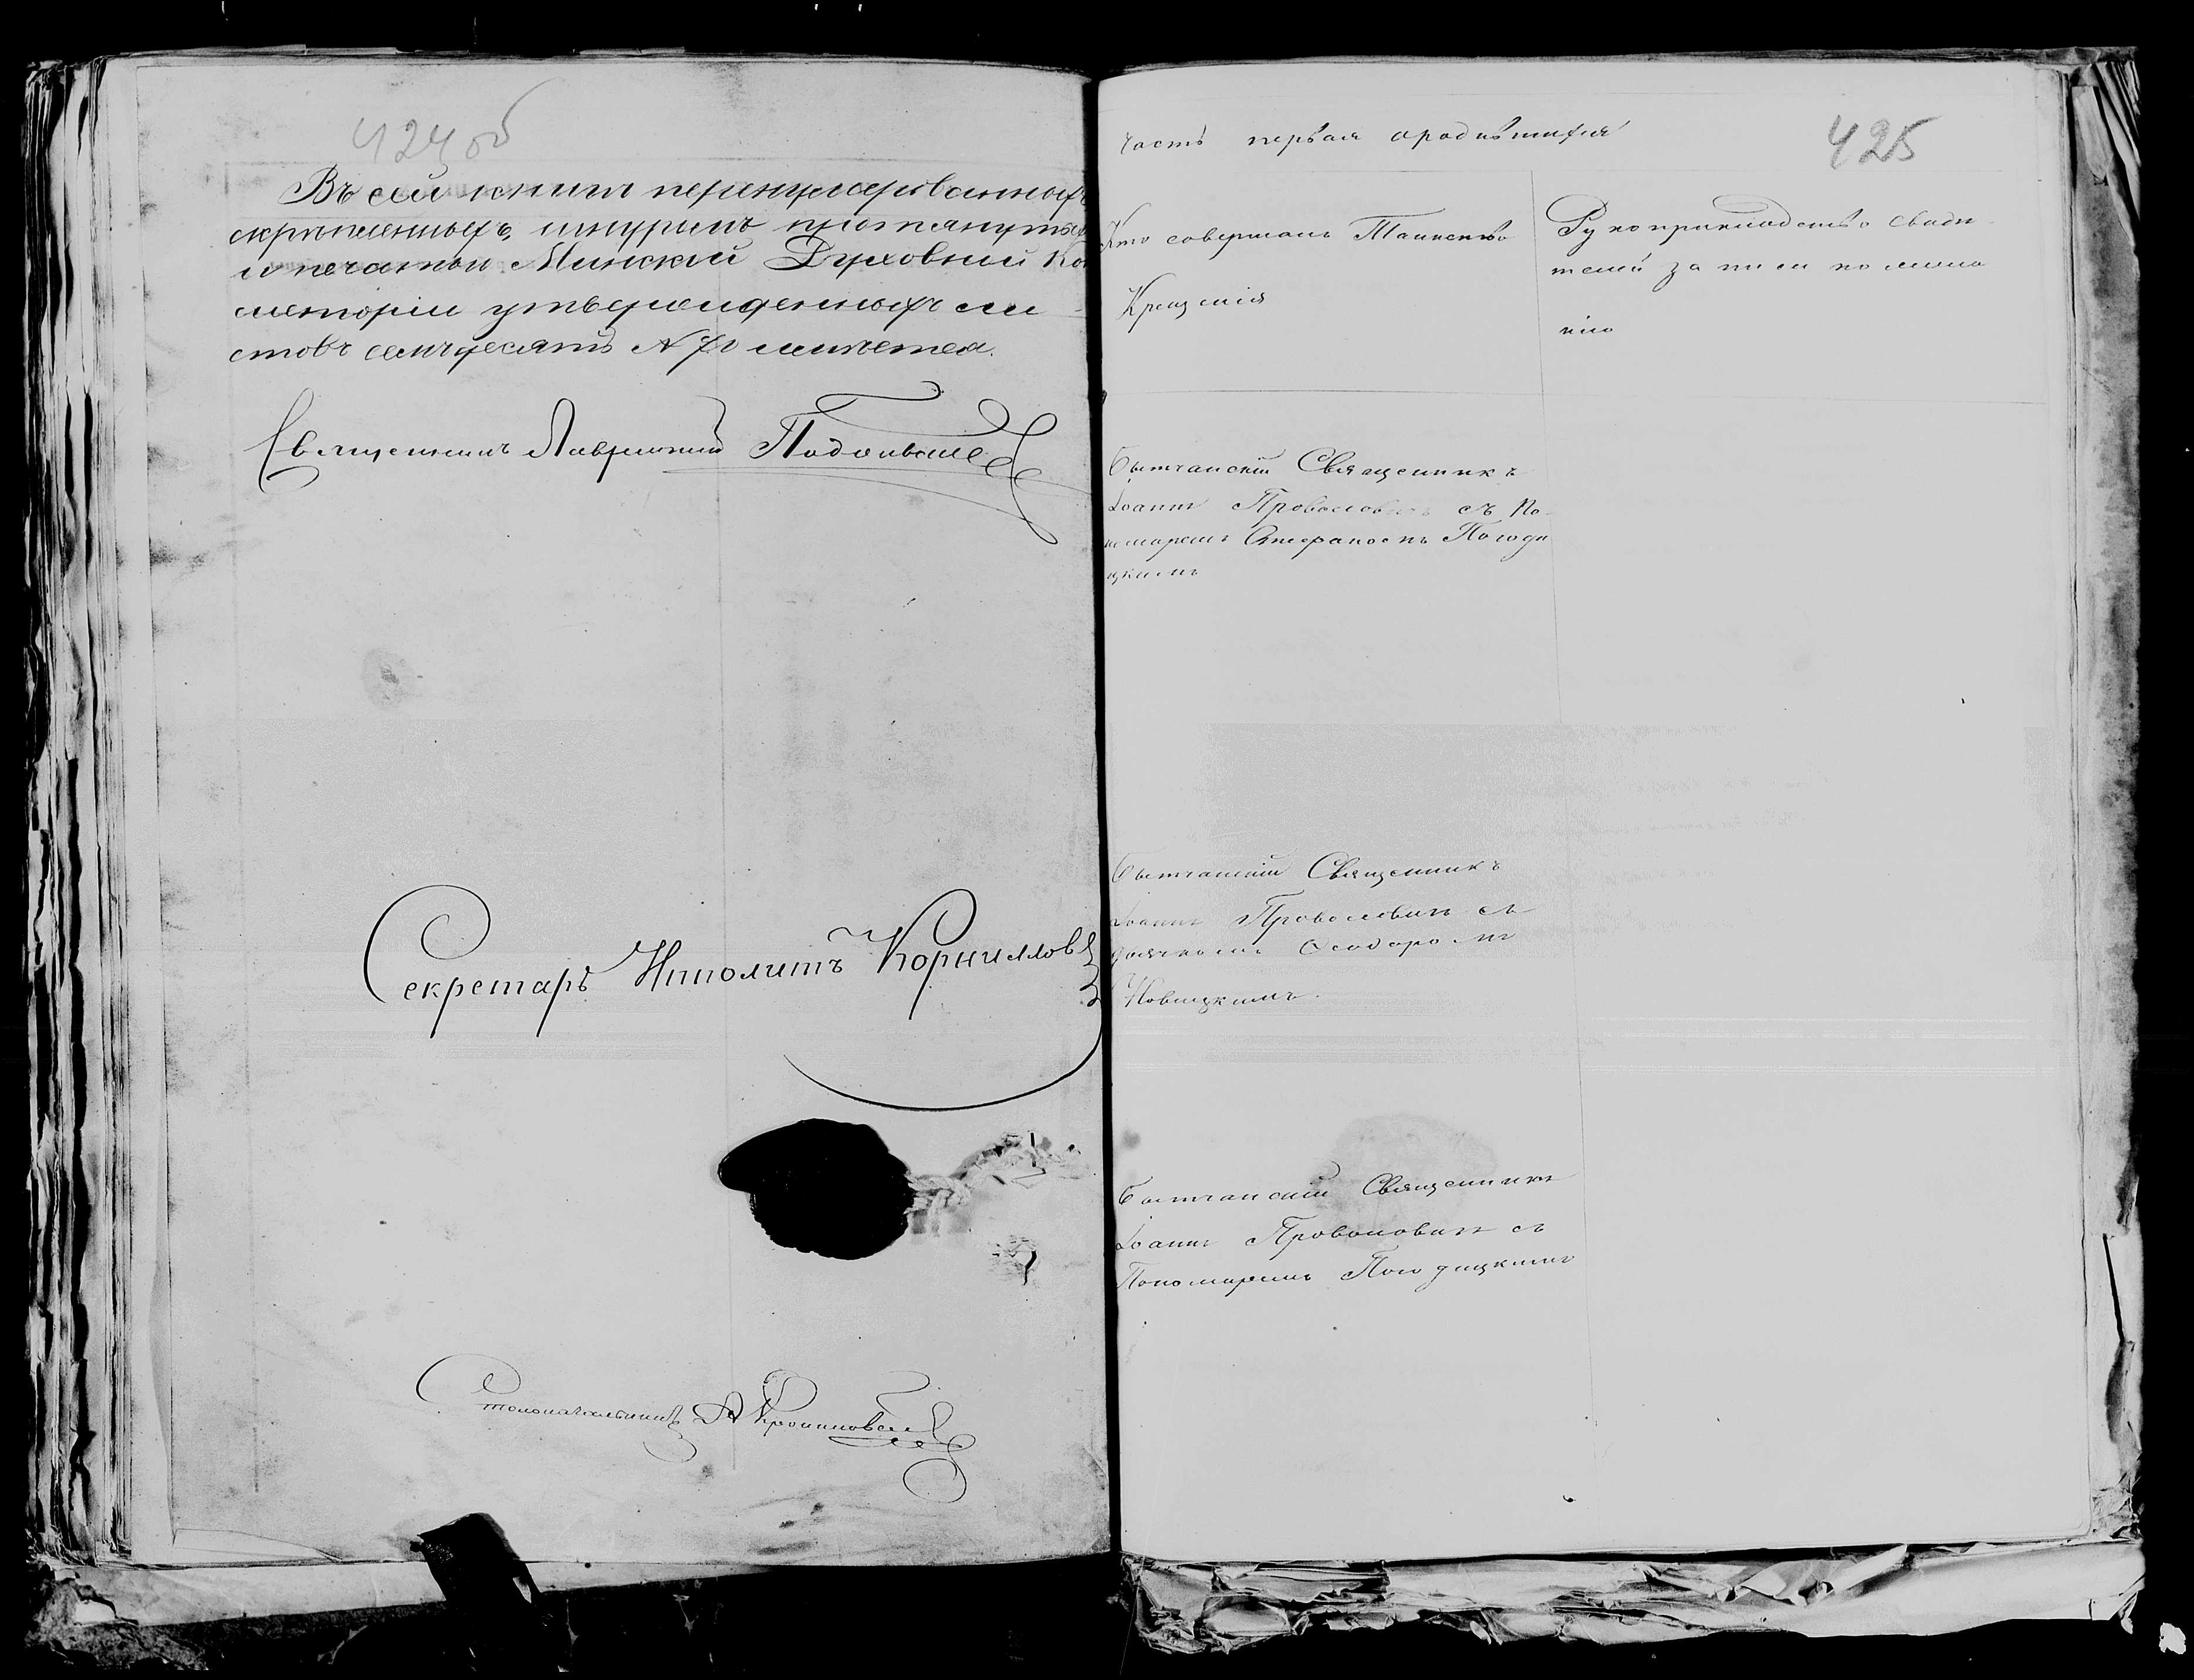 424об
Въ сей книгѣ перенумерованныхъ
скрѣпленныхъ, шнуромъ протянутыхъ
и печатью Минской Духовной Кон
систоріи утвержденныхъ ли
стовъ семьдесятъ N 70 имѣется.
Священникъ Лаврентій
Секретарь Ипполитъ Корниллов
Столоначальникъ А
425
Часть первая о родившихся
Кто совершалъ Таинство
Крещенія
Рукоприкладство свидѣ
телей записи по жела
нію
Бытчанскій Священникъ
Іоаннъ съ По
номаремъ Погодиц
кимъ
Бытчанскій Священникъ
Іоаннъ Проволовичъ съ
дьячкомъ Ѳеодоромъ
Новицкимъ.
Бытчанскій Священникъ
Іоаннъ Проволовичъ съ
Пономаремъ Погодицкимъ